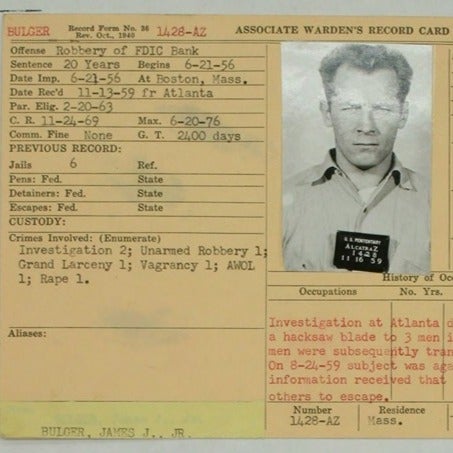 BULGER Record Form No. 36 1428-AZ ASSOCIATE WARDEN'S RECORD CARD
Rev. Oct., 1940
Offense Robbery of FDIC Bank
Sentence 20 Years Begins 6-21-56
Date Imp. 6-21-56 At Boston, Mass.
Date Rec'd 11-13-59 fr Atlanta
Par. Elig. 2-20-63
C. R. 11-24-69 Max. 6-20-76
Comm. Fine None G. T. 2400 days
PREVIOUS RECORD:
Jails 6 Ref.
Pens: Fed. State
Detainers: Fed. State
Escapes: Fed. State
CUSTODY:
Crimes Involved: (Enumerate)
Investigation 2; Unarmed Robbery 1;
Grand Larceny 1; Vagrancy 1; AWOL
1; Rape 1.
Aliases:
BULGER, JAMES J., JR.
U.S. PENITENTARY
ALCATRAZ
1428
11 16 59
History of Oc
Occupations No. Yrs.
Investigation at Atlanta d
a hacksaw blade to 3 men i
men were subsequently tran
On 8-24-59 subject was aga
information received that
others to escape.
Number Residence
1428-AZ Mass.